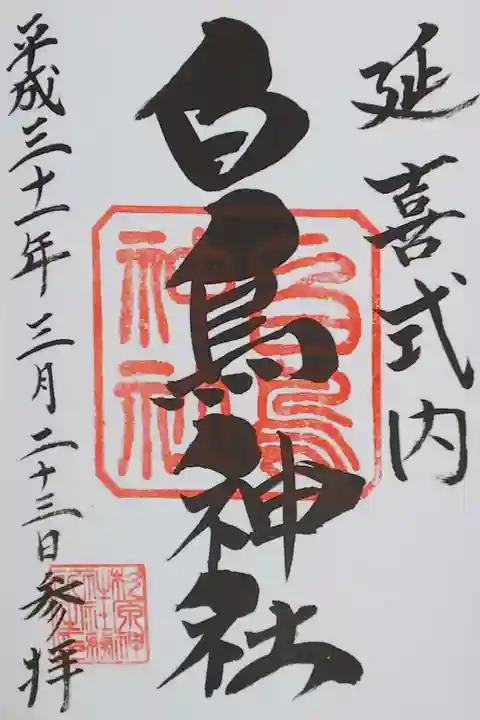 延喜式内
白鳥神社
白鳥
神社
平成三十一年三月二十三日参拝